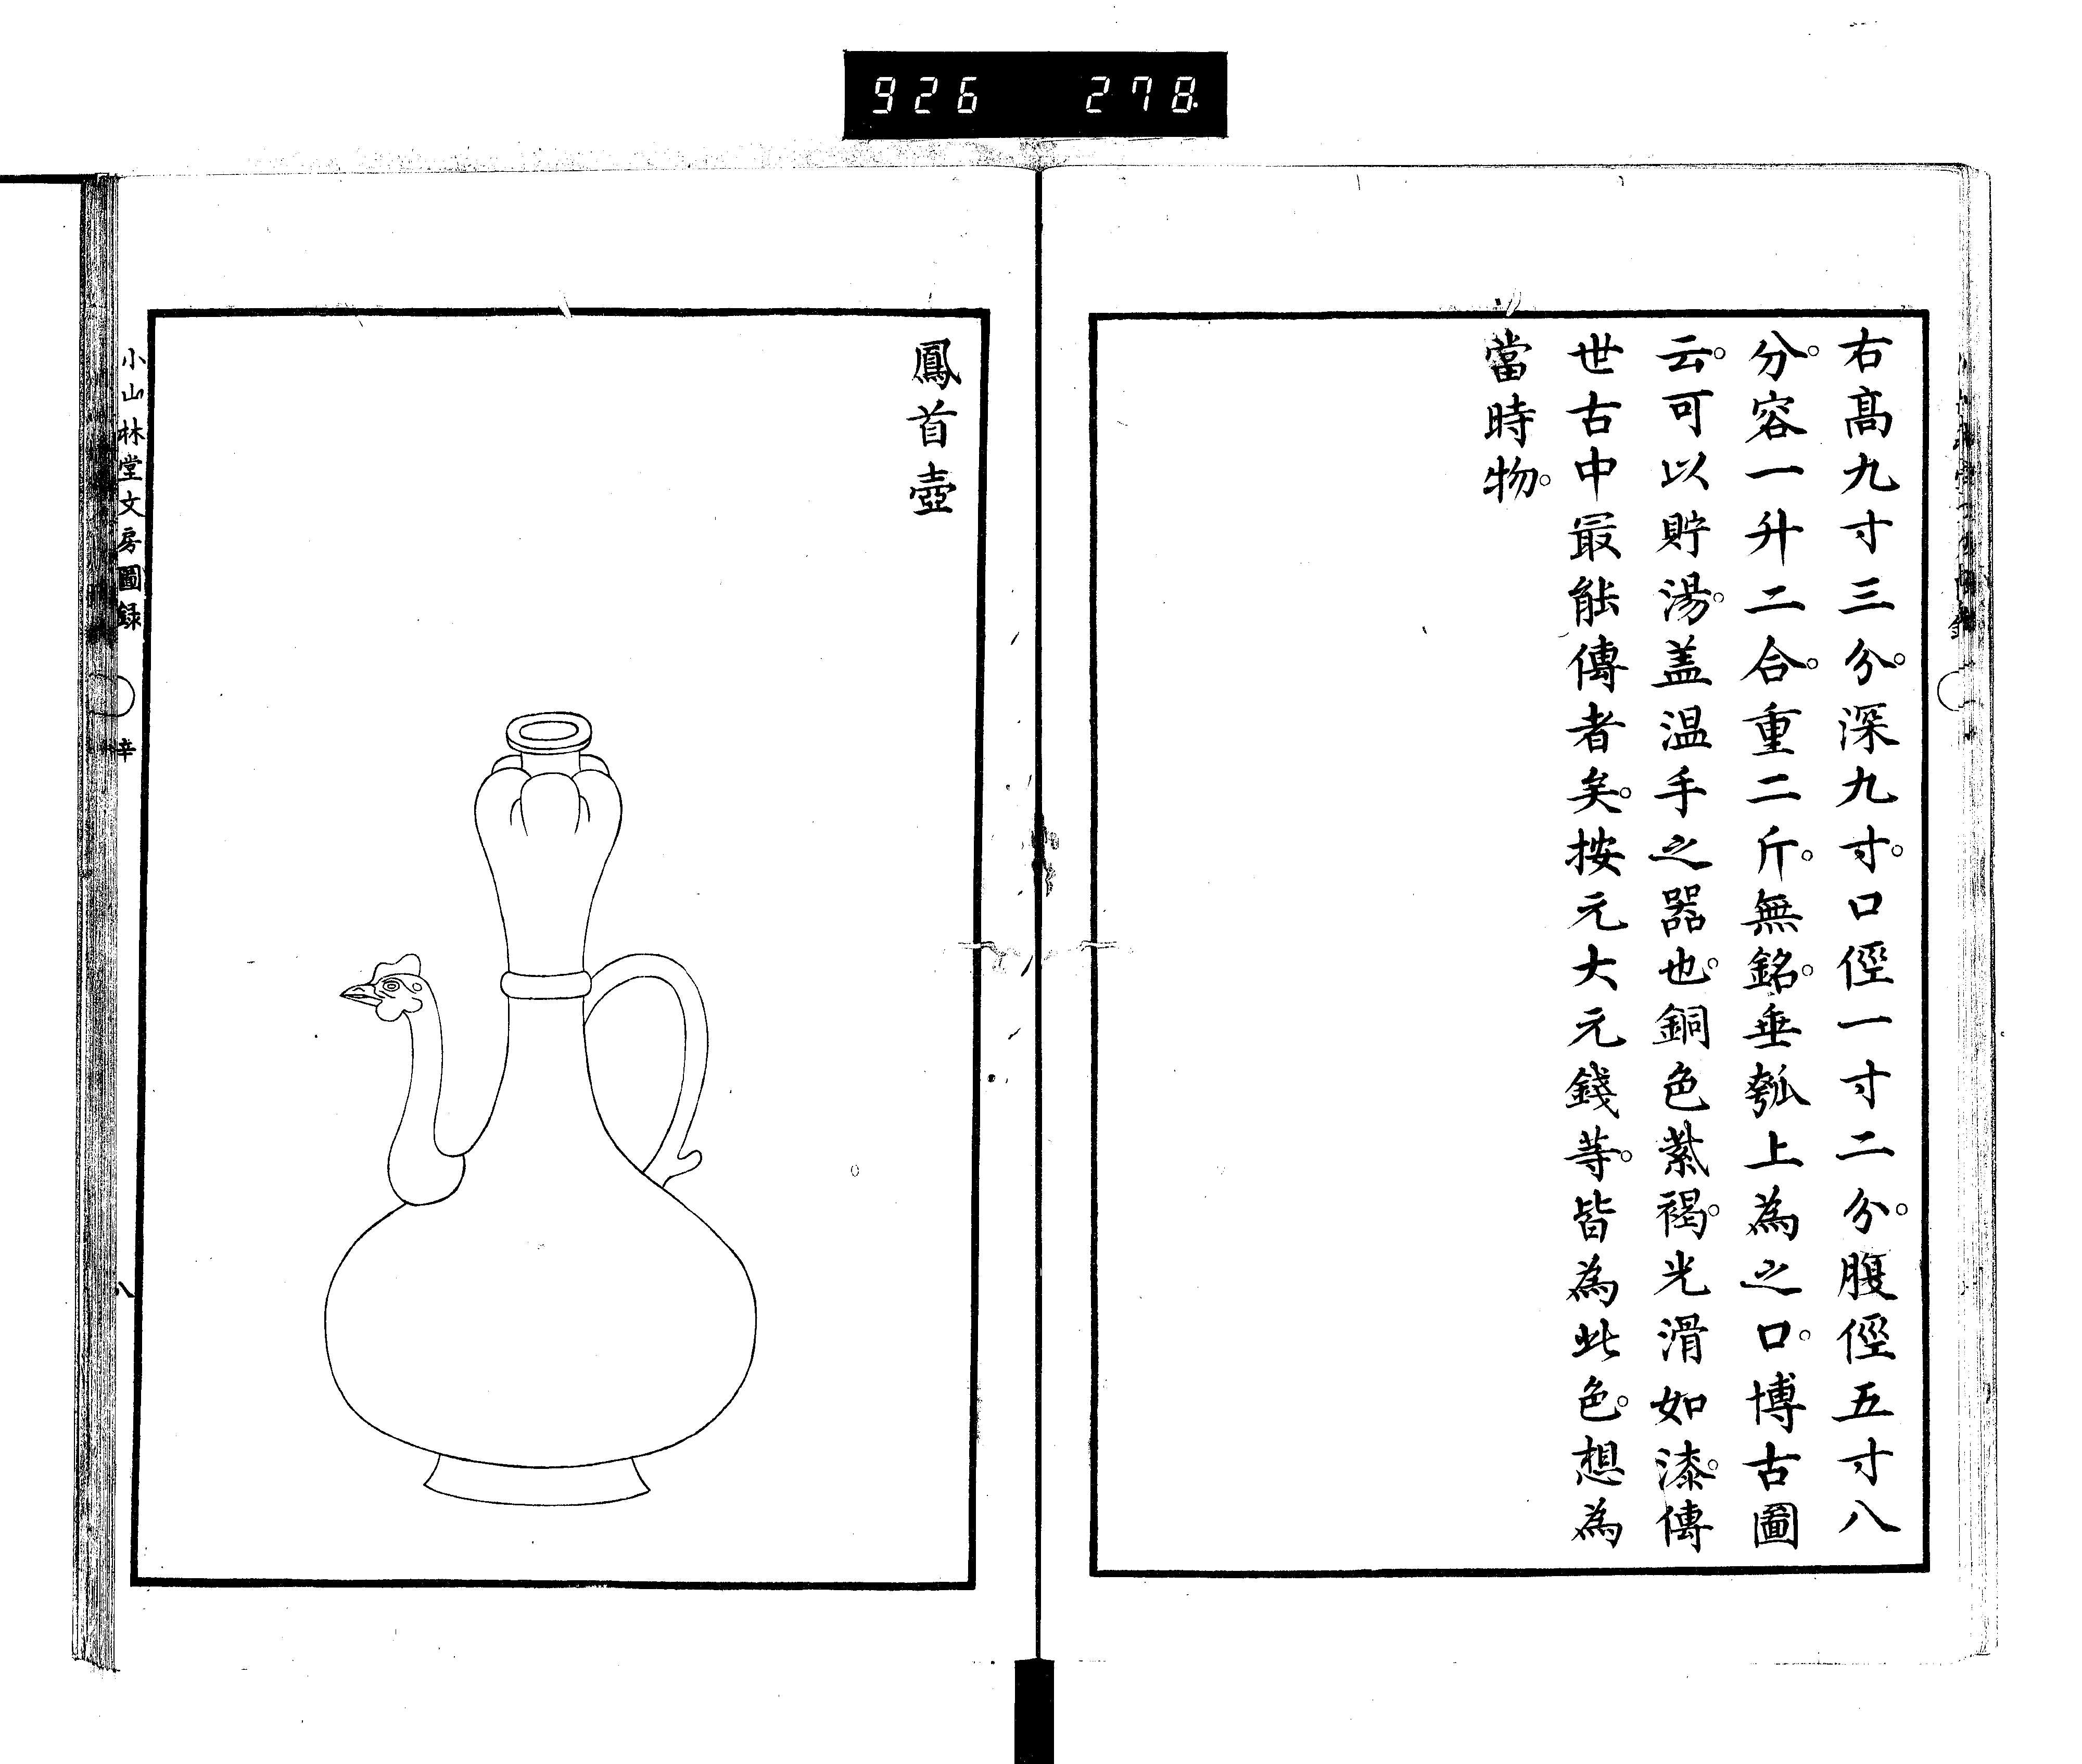 926 278
右高九寸三分。深九寸。口徑一寸二分。腹徑五寸八
分。容一升二合。重二斤。無銘。垂瓠上為之口。博古圖
云。可以貯湯。盖温手之器也。銅色紫褐。光滑如漆。傳
世古中最能傳者矣。按元大元錢等。皆為此色。想為
當時物。
鳳首壺
小山林堂文房圖録 辛 八